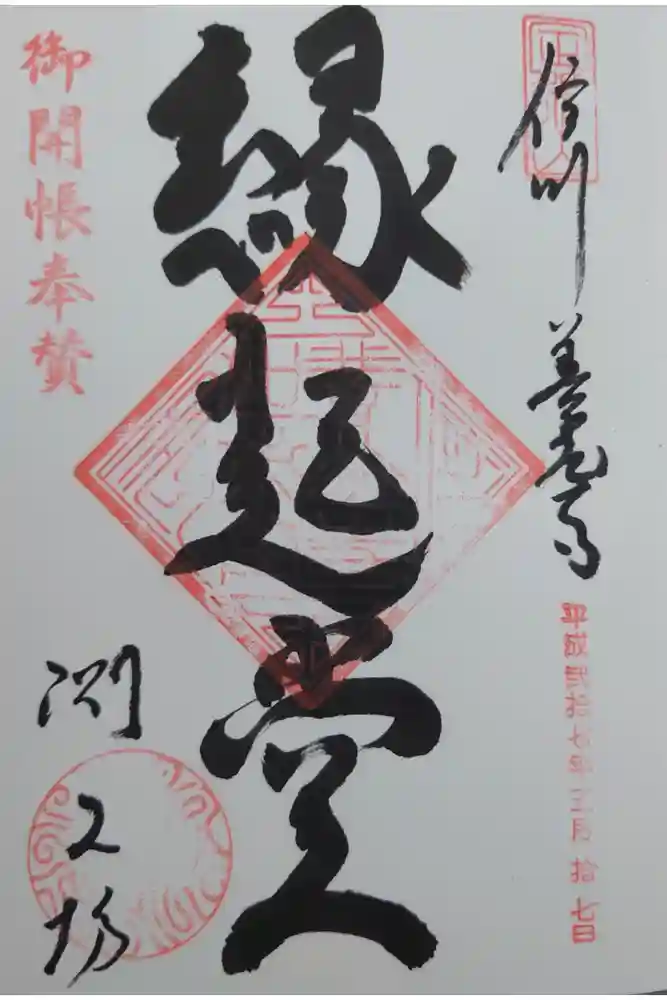 信州 善光寺
平成弐拾七年五月拾七日
縁起堂
御開帳奉賛
渕之坊